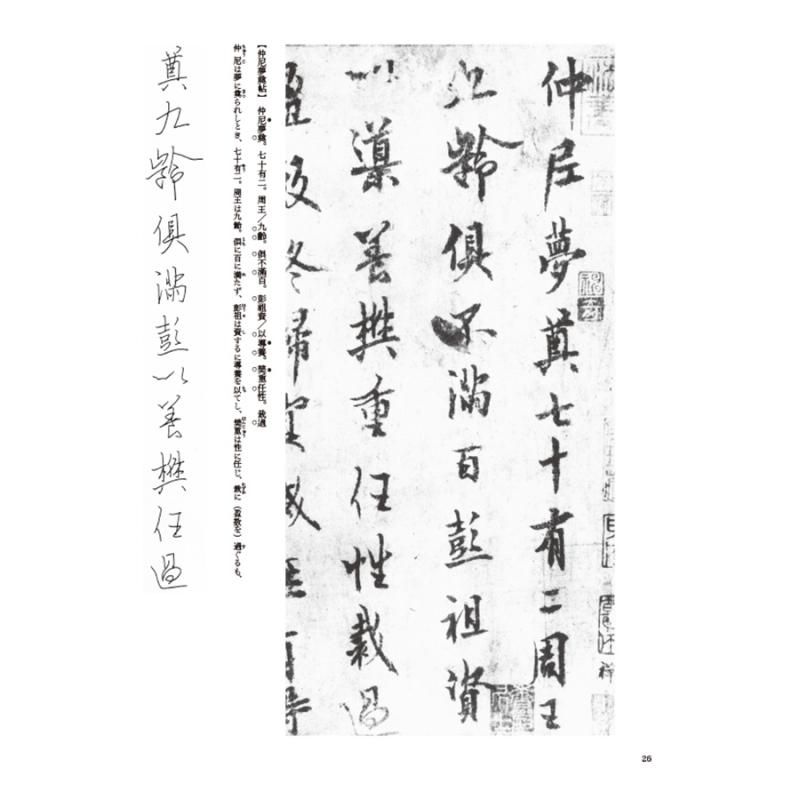 仲尼夢奠七十有二周王
九齡俱不滿百彭祖資
以導養樊重任性裁過
盈數終歸冥滅無有得
【仲尼夢奠帖】 仲尼夢奠。七十有二。周王／九齡。俱不滿百。彭祖資／以導養。樊重任性。裁過
仲尼は夢に奠られしとき、七十有二。周王は九齡。俱に百に満たず、彭祖は資するに導養を以てし、樊重は性に任じ、裁に（盈数を）過ぐるも、
奠九齡俱滿彭以養樊任過
26